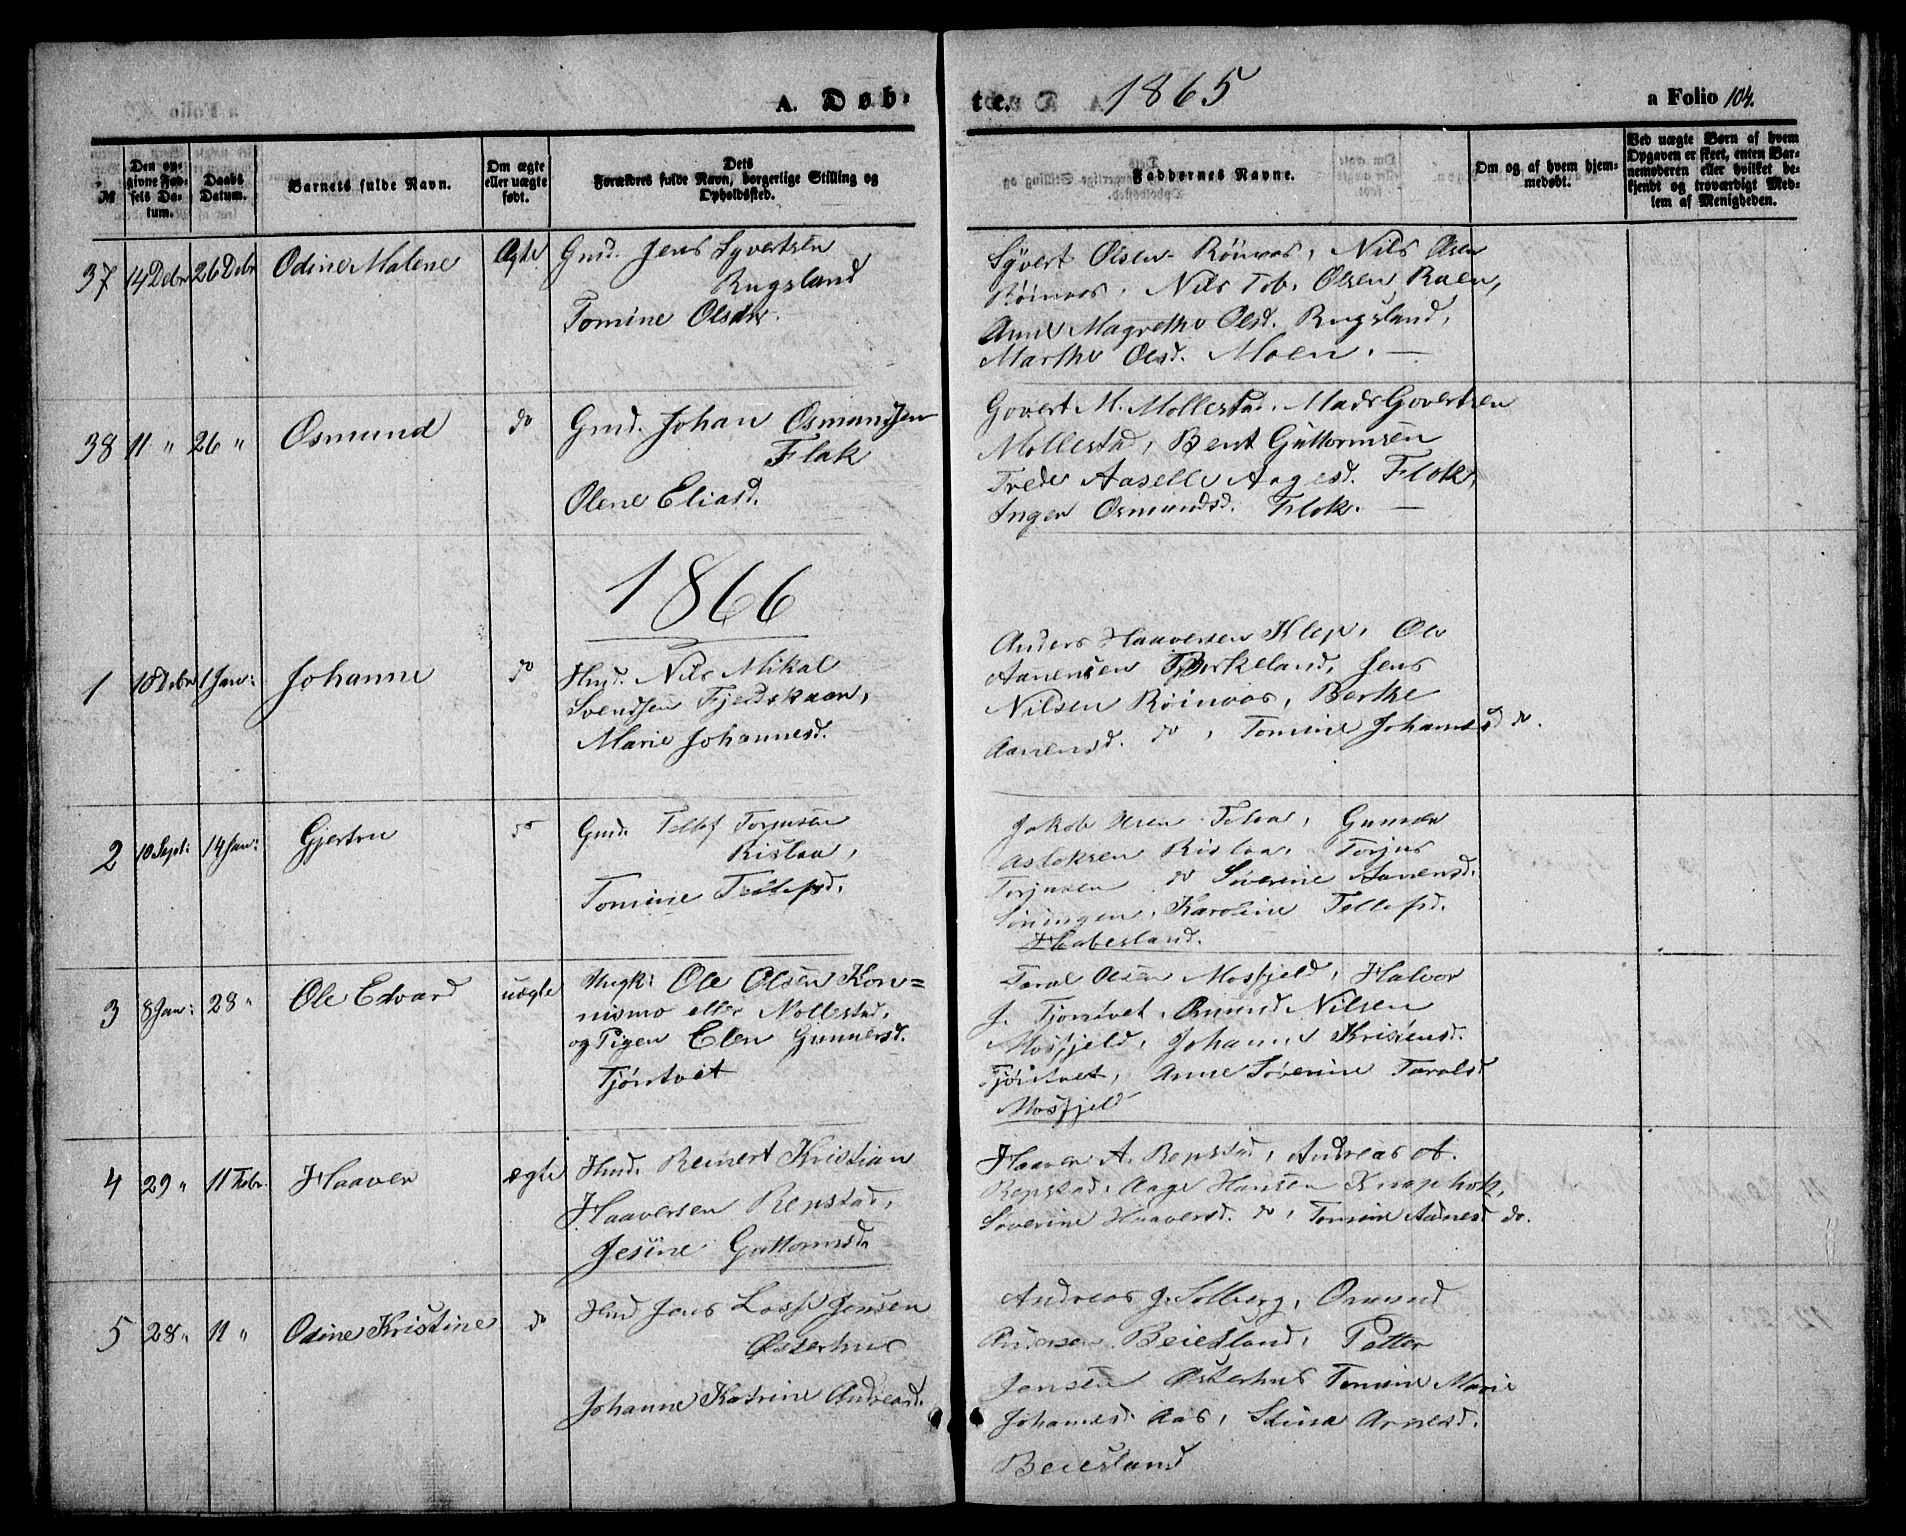 A. Døb-
te. 1865
a Folio 104.
№
Den op-
givne Fød-
sels Da-
tum.
Daabs
Datum.
Barnets fulde Navn.
Om ægte
eller uægte
født.
Dets
Forældres fulde Navn, borgerlige Stilling og
Opholdssted.
Faddernes Navne.
Om og af hvem hjem-
medøbt.
Ved uægte Børn af hvem
Opgaven er skeet, enten Bar-
nemoderen eller hvilket be-
kjendt og troværdigt Med-
lem af Menigheden.
37 14 Debr 26 Debr Odine Malene Ægte Gmd. Jens Syvertsen
Rugsland
Tomine Olsdr.
Syvert Olsen Röinaas, Nils Olsen
Röinaas, Nils Tob. Olsen Raen,
Anne Magrethe Olsd. Rugsland,
Marthe Olsd. Moen. —
38 11 " 26 " Osmund do Gmd. Johan Osmundsen
Flak
Olene Eliasd.
Govert M. Mollestad, Mads Govertsen
Mollestad, Bent Guttormsen
Trede Aaselle Aagesd. Flak,
Inger Osmundsd. Flak. —
1866
1 18 Debr 1 Jan: Johanne do Hmd. Nils Mikal
Svendsen Fjeldskaar,
Marie Johannesd.
Anders Haaversen Klep, Ole
Aanensen Birkeland, Jens
Nilsen Röinaas, Berthe
Aanensd. do, Tomine Johannesd do.
2 10 Sept: 14 Jan: Gjertru do Gmd. Tellef Torjusen
Rislaa,
Tomine Tellefsd.
Jakob Olsen Tolaa, Gunner
Aslaksen Rislaa, Torjus
Torjusen do Severine Aanensd.
Karoline Tellefsd.
Haabesland.
3 8 Jan: 28 " Ole Edvard uægte Ungk: Ole Olsen Kon=
nismo eller Mollestad,
og Pigen Elen Gunnersd.
Tjöntvet
Taral Olsen Mosfjeld, Halvor
J. Tjöntvet, Omund Nilsen
Mosfjeld, Johanne Kristensd.
Tjöntvet, Anne Severine Taralsd
Mosfjeld
4 29 " 11 Febr. Haaver ægte Hmd. Reinert Kristian
Haaversen Repstad,
Jesine Guttormsd.
Haaver A. Repstad, Andreas A.
Repstad, Aage Hansen Knapholt,
Severine Haaversd. do, Tomine Aadnesd do.
5 28 " 11 " Odine Kristine do Hmd Jens Losf Jensen
Østerhus
Johanne Katrine Andreasd.
Andreas J. Solberg, Omund
Beiesland, Petter
Jensen Østerhus Tomine Marie
Johannesd. Aas, Stina Arnesd.
Beiesland